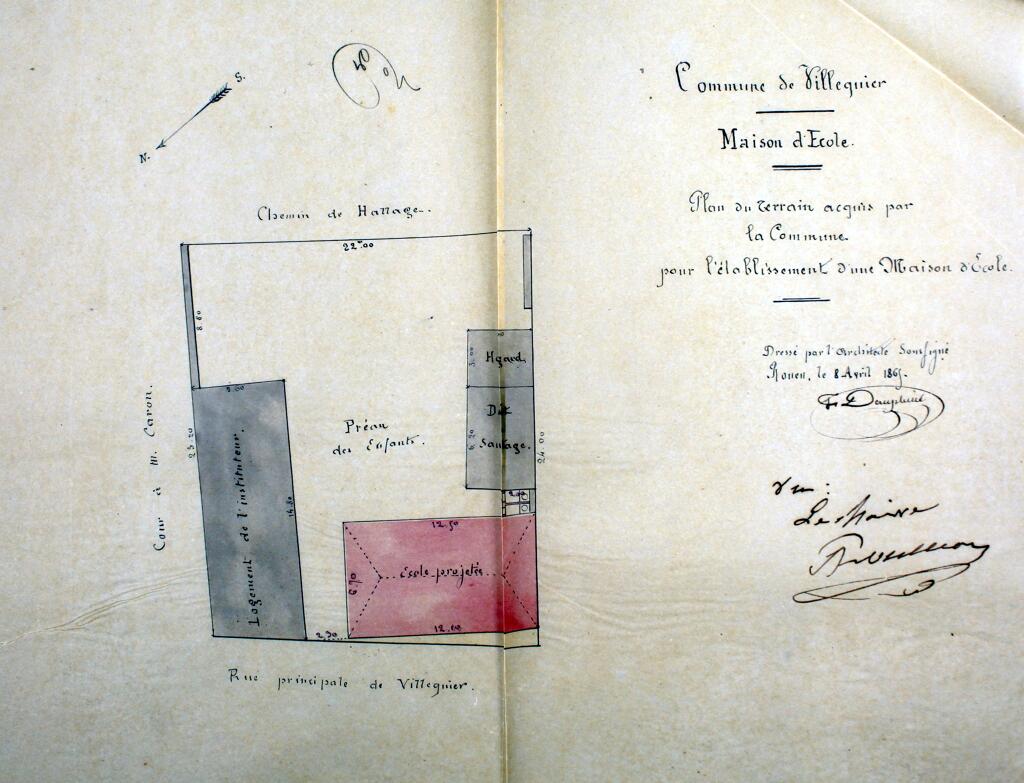 Commune de Villequier
Maison d'Ecole.
Plan du terrain acquis par
la Commune
pour l'établissement d'une Maison d'Ecole.
Dressé par l'Architecte Soussigné
Rouen, le 8 Avril
F. Dauphiné
Vu:
Le Maire
S.
N.
Chemin de Hallage.
22.m00
8.60
5.00
Hgard
Préau
des Enfants.
6.20
24.00
Cour à M. Caron.
23.20
Logement de l'instituteur.
14.80
2.00
12.50
6.70
Ecole projetée
12.00
2.30
Rue principale de Villequier.